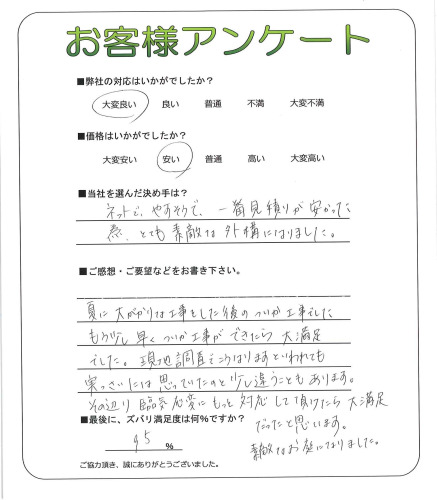 お客様アンケート
■弊社の対応はいかがでしたか？
大変良い 良い 普通 不満 大変不満
■価格はいかがでしたか？
大変安い 安い 普通 高い 大変高い
■当社を選んだ決め手は？
ネットで、やすそうで、一番見積りが安かった
為、とても素敵な外構になりました。
■ご感想・ご要望などをお書き下さい。
夏に大がかりな工事をした後のついか工事でした
もう少し早くついか工事ができたら大満足
でした。現地調査そこなりますといわれても
実っさいには思っていたのと少し違うこともあります。
その辺り臨気応変にもっと対応して頂けたら大満足
だったと思います。
素敵なお庭になりました。
■最後に、ズバリ満足度は何%ですか？
95 %
ご協力頂き、誠にありがとうございました。